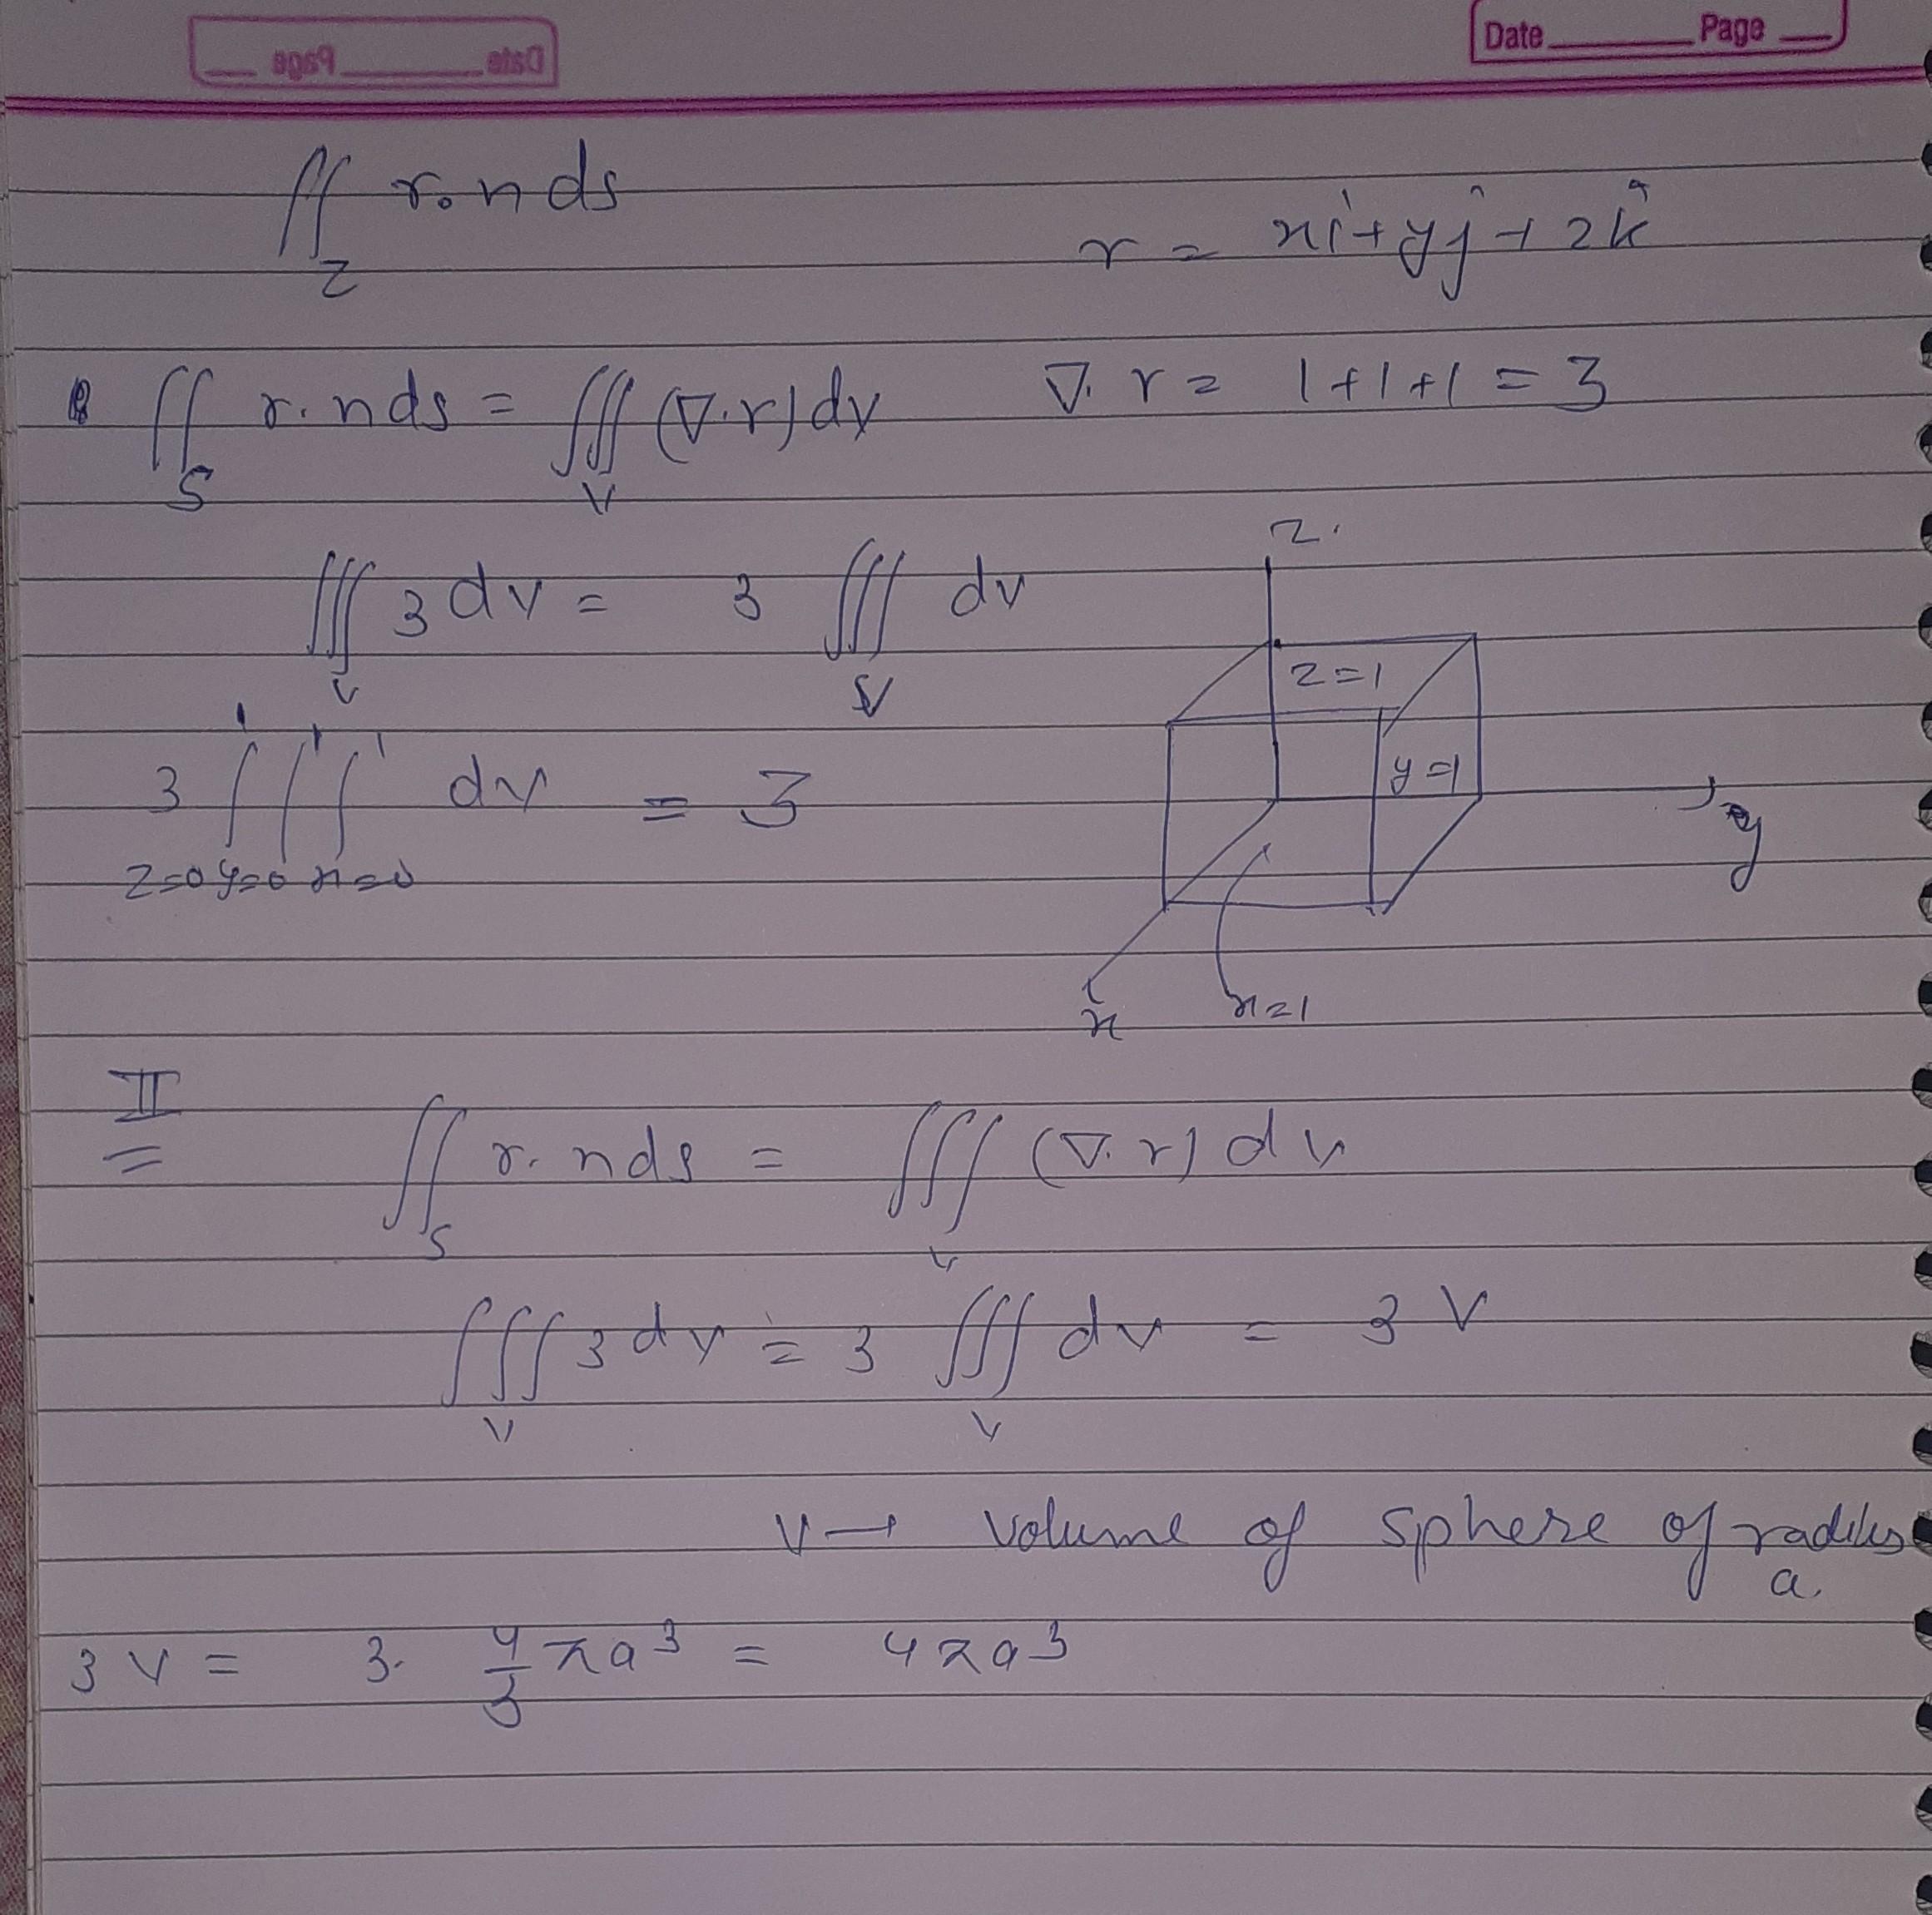 Date Page
∬ r.n ds
Σ
r = xî + yĵ + zk̂
∬_S r.n ds = ∭_V (∇.r) dv ∇.r = 1+1+1 = 3
∭_V 3 dv = 3 ∭_V dv
3 ∫_{z=0}^{1} ∫_{y=0}^{1} ∫_{x=0}^{1} dv = 3
z
z=1
y=1
y
x
x=1
II
∬_S r.n ds = ∭_V (∇.r) dv
∭_V 3 dv = 3 ∭_V dv = 3 V
V → volume of sphere of radius
a.
3 V = 3. 4/3 πa³ = 4πa³